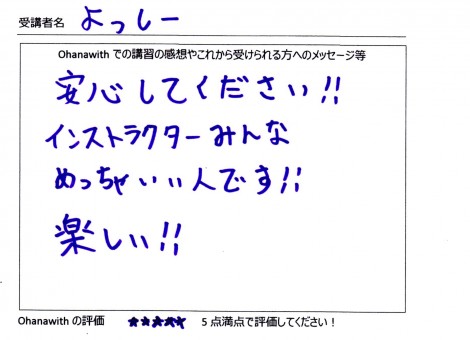 受講者名 よっしー
Ohanawith での講習の感想やこれから受けられる方へのメッセージ等
安心してください!!
インストラクターみんな
めっちゃいい人です!!
楽しい!!
Ohanawith の評価 ★★★★★ 5点満点で評価してください！